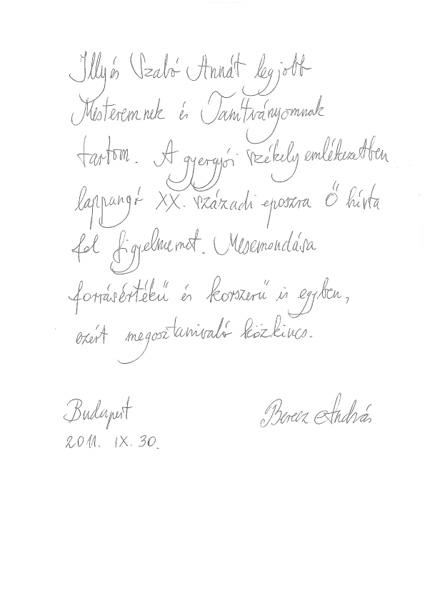 Illyés Szabó Annát legjobb
Mesteremnek és Tanítványomnak
tartom. A gyergyói székely emlékezetben
lappangó XX. századi eposzra Ő hívta
fel figyelmemet. Mesemondása
forrásértékű és korszerű is egyben,
ezért megosztanivaló közkincs.
Budapest
Berecz András
2011. IX. 30.